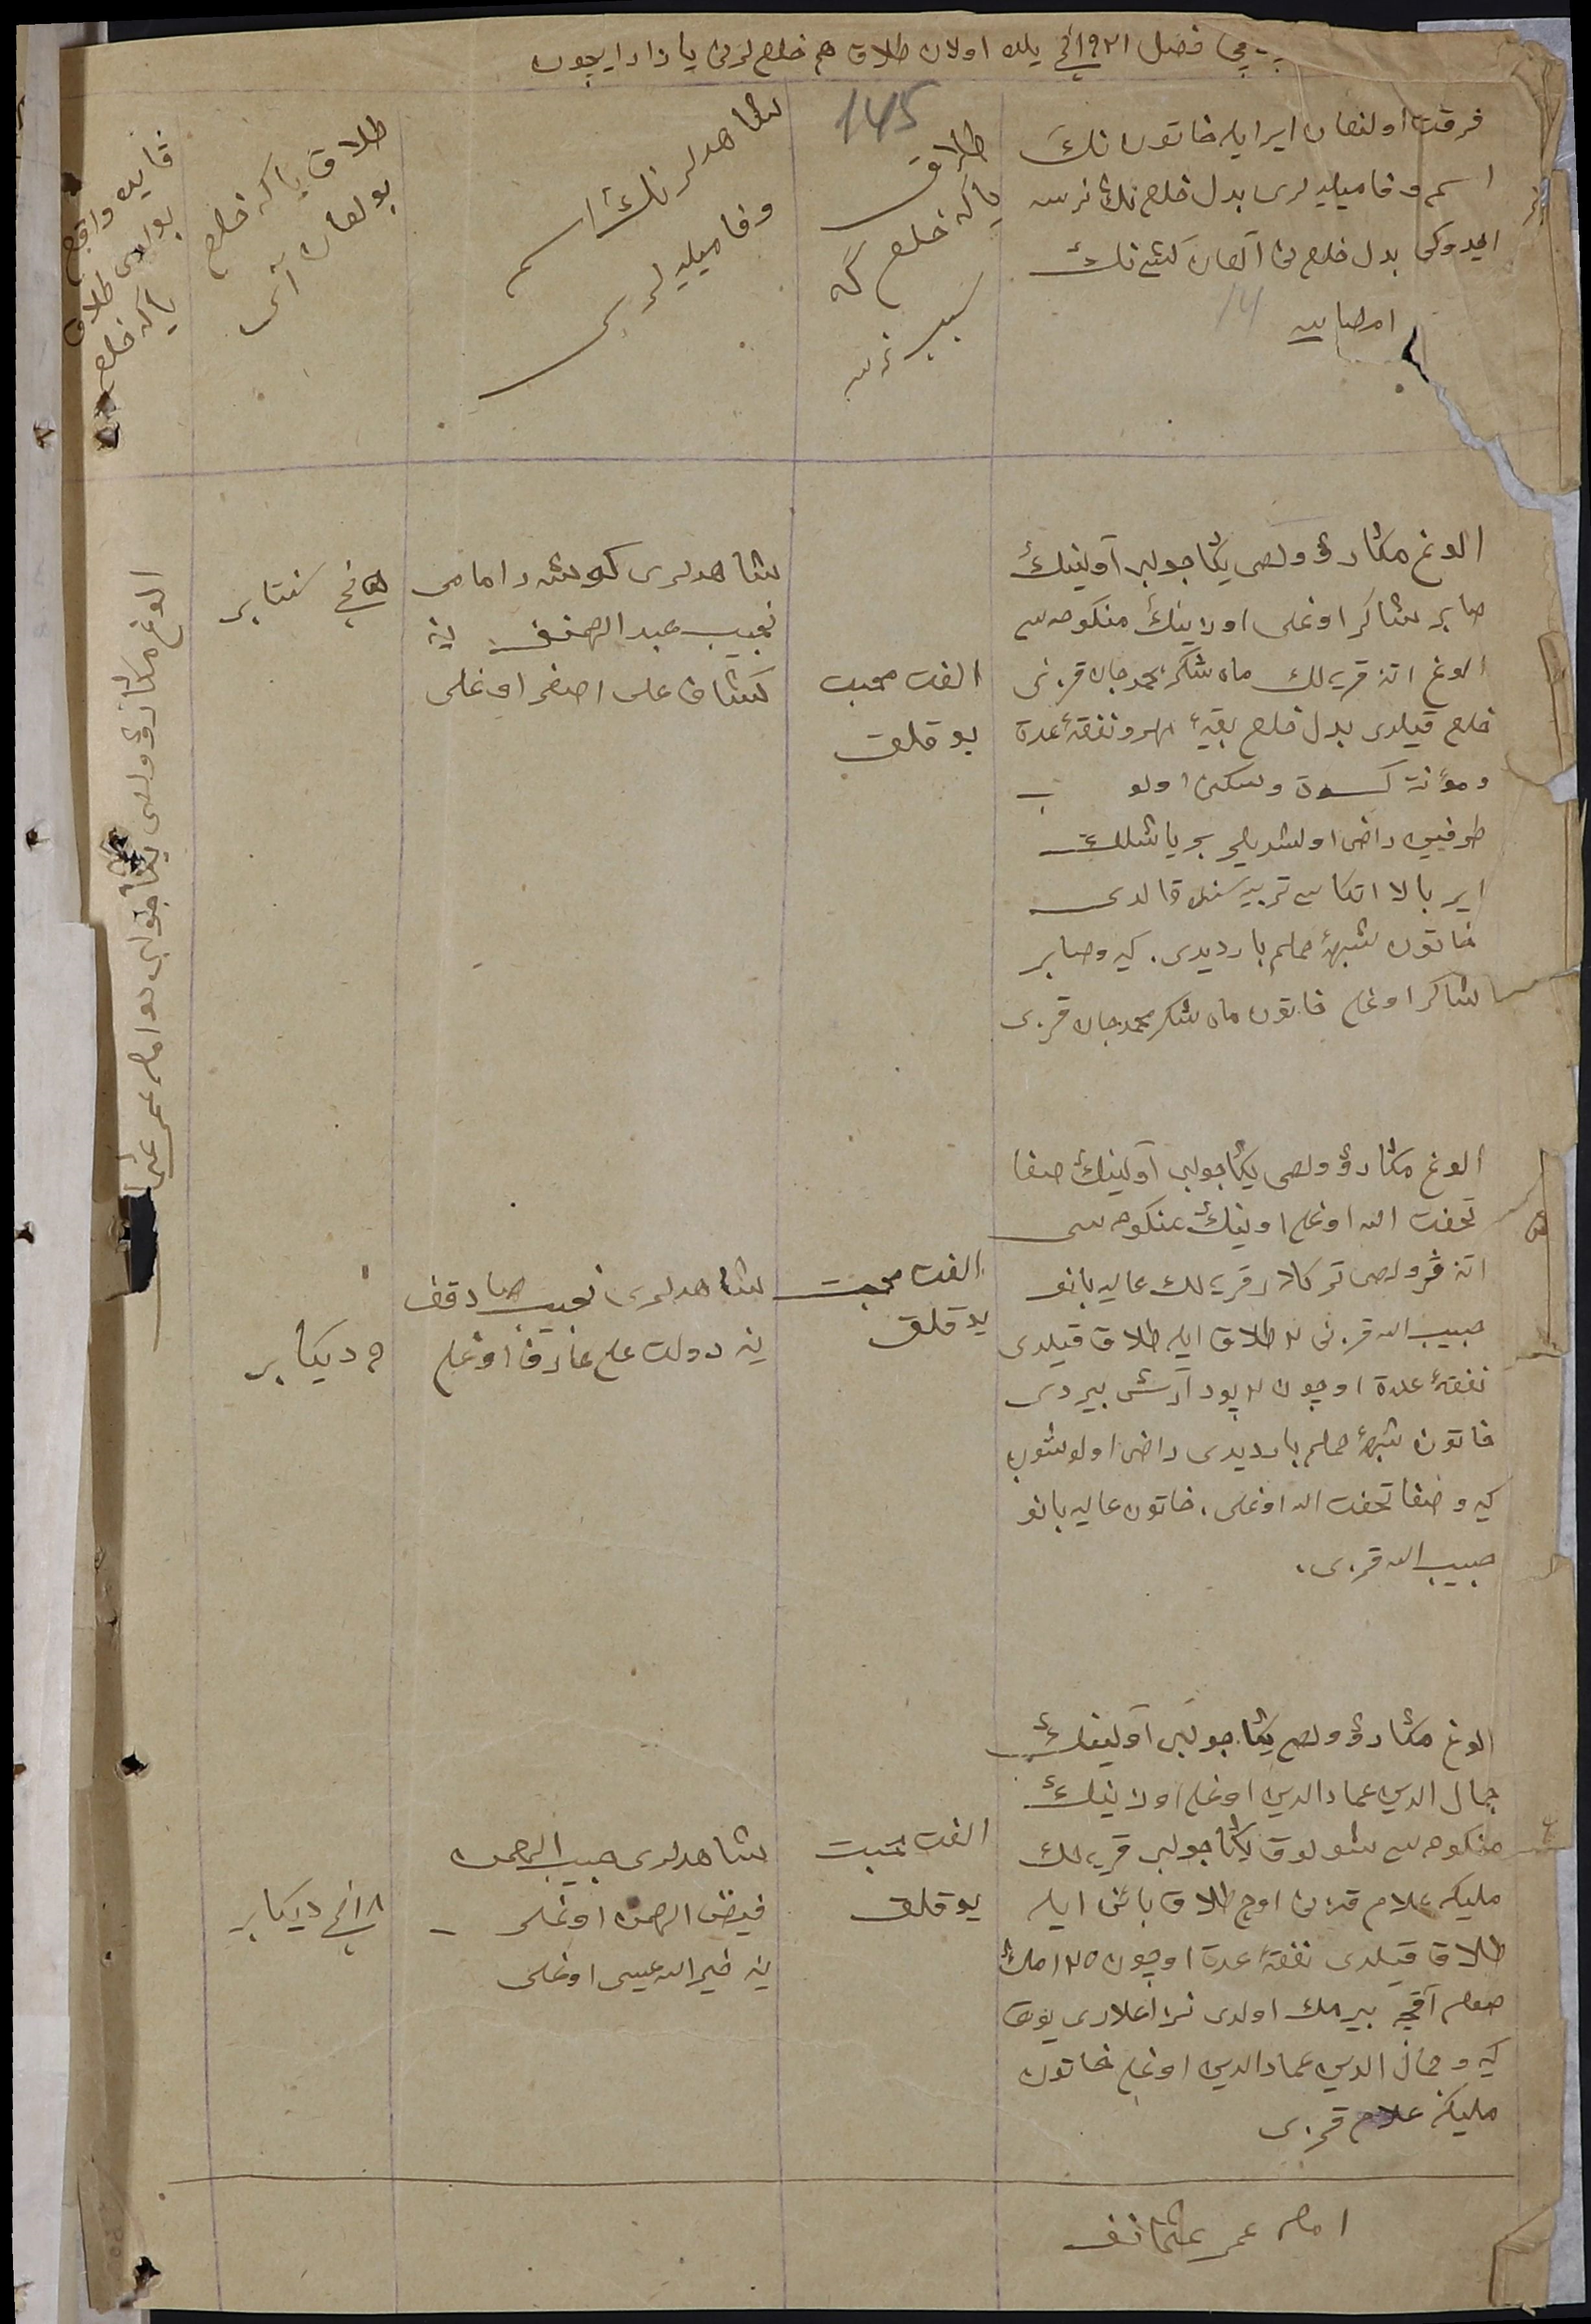 فصل ١٩٢١ نچی یلده اولان طلاق هم خلع لرنی یازار ایچون
145
فرقت اولنغان ایر ایله خاتون ننڭ
اسم و فامیلیه لری بدل خلع ننڭ نرسه
ایدوکی بدل خلع نی آلغان کشی ننڭ
امضاسی
14
طلاق
یاکه خلع گه
سبب نرسه
شاهدلرننڭ اسم
و فامیلیه لری
طلاق یاکه خلع
بولغان آی
قایده واقع
بولدی طلاق
یاکه خلع
الوغ مڭار وولصی یڭا جولبر آولیننڭ
صابر شاکر اوغلی اولاینڭ منکوحه سی
الوغ اتنه قریه لك ماه شکر محمدجان قزینی
خلع قیلدی بدل خلع بقیهٔ مهر و نفقهٔ عدة
و مؤنت کسوة و سکنی اولوب
طرفین راضی اولشدیلر بر یاشلك
ایر بالا اتکاسی تربیه سنده قالدی
خاتون شبههٔ حملم بار دیدی. کیه و صابر
شاکر اوغلی خاتون ماه شکر محمدجان قزی
الفت محبت
یوقلق
شاهدلری کوشار امامی
نجیب عبد
ینه
کشاف علی اصغر اوغلی
نچی سنتابر
الوغ مڭار وولصی یڭا جولبر آولیننڭ صفا
تحفت الله اوغلی اویننڭ منکوحه سی
اتنه وولصی ترکلار قریه لك عالیه بانو
حبیب الله قزینی ٢ طلاق ایله طلاق قیلدی
نفقهٔ عدة اوچون ٢ پود آرش بیردی
خاتون شبههٔ حملم بار دیدی راضی اولوشوب
کیه و صفا تحفت الله اوغلی، خاتون عالیه بانو
حبیب الله قزی،
الفت محبت
یوقلق
شاهدلری نجیب صادقف
ینه دولت علی عارف اوغلی
٥ دیکابر
الوغ مڭار وولصی یڭا جولبر آولیننڭ
جمال الدین عماد الدین اوغلی اولاینڭ
منکوحه سی شولوق یڭا جولبر قریه لك
ملیکه علام قزینی اوچ طلاق بائن ایله
طلاق قیلدی نفقهٔ عدة اوچون ١٢٥ مڭ
صوم آقچه بیرمك اولدی نزاعلاری یوق
کیه و جمال الدین عماد الدین اوغلی خاتون
ملیکه علام قزی
الفت محبت
یوقلق
شاهدلری حبیب الرحمن
فیض الرحمن اوغلی
ینه خیر الله عیسی اوغلی
١٨ نچی دیکابر
امام عمر عثمانف
الوغ مڭار وولصی یڭا جولبر ده امام عمر